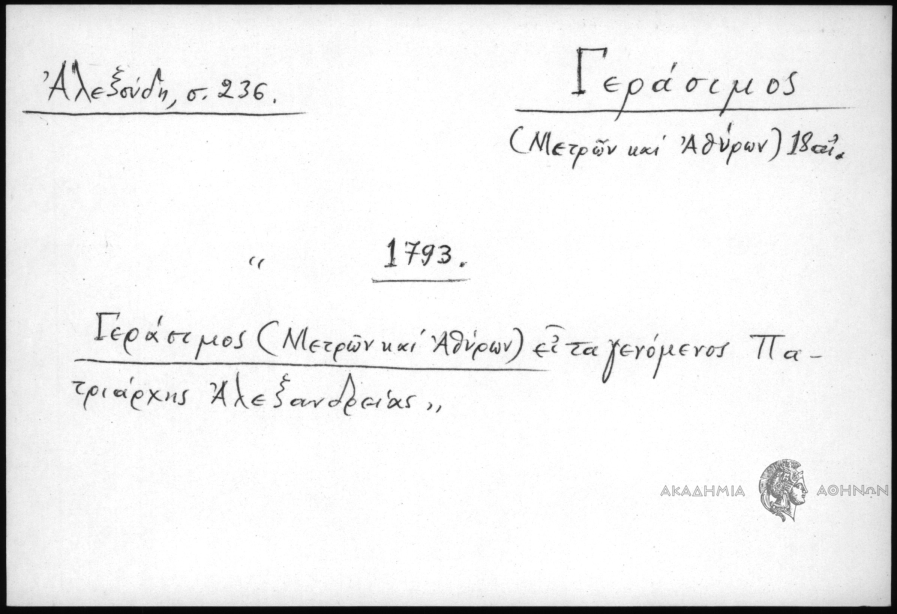 Ἀλεξούδη, σ. 236.
Γεράσιμος
(Μετρῶν καί Ἀθύρων) 18 αἰ.
“ 1793.
Γεράσιμος (Μετρῶν καί Ἀθύρων) εἶτα γενόμενος Πα-
τριάρχης Ἀλεξανδρείας „
ΑΚΑΔΗΜΙΑ ΑΘΗΝΩΝ